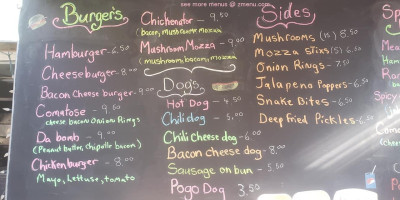 see more menus @ zmenu.com
Burgers
Hamburger - 6.50
Cheeseburger - 8.00
Bacon Cheese burger - 9.00
Comatose - 9.50
cheese bacon Onions Rings
Da bomb - 9.00
(Peanut butter, chipotle bacon)
Chicken burger - 8.00
Mayo, lettuse, tomato
Chichenator - 9.50
(bacon, mushrooms mozza
Mushroom Mozza - 9.00
(mushroom, bacon, mozza
Dogs
Hot Dog - 4.50
Chili dog - 5.00
Chili cheese dog - 6.00
Bacon cheese dog - 8.00
Sausage on bun - 5.50
Pogo Dog 3.50
Sides
Mushrooms (15) 8.50
Mozza Stixs (5) 6.50
Onion Rings - 7.50
Jalapeno Poppers - 6.50
Snake Bites - 6.50
Deep Fried Pickles - 6.50